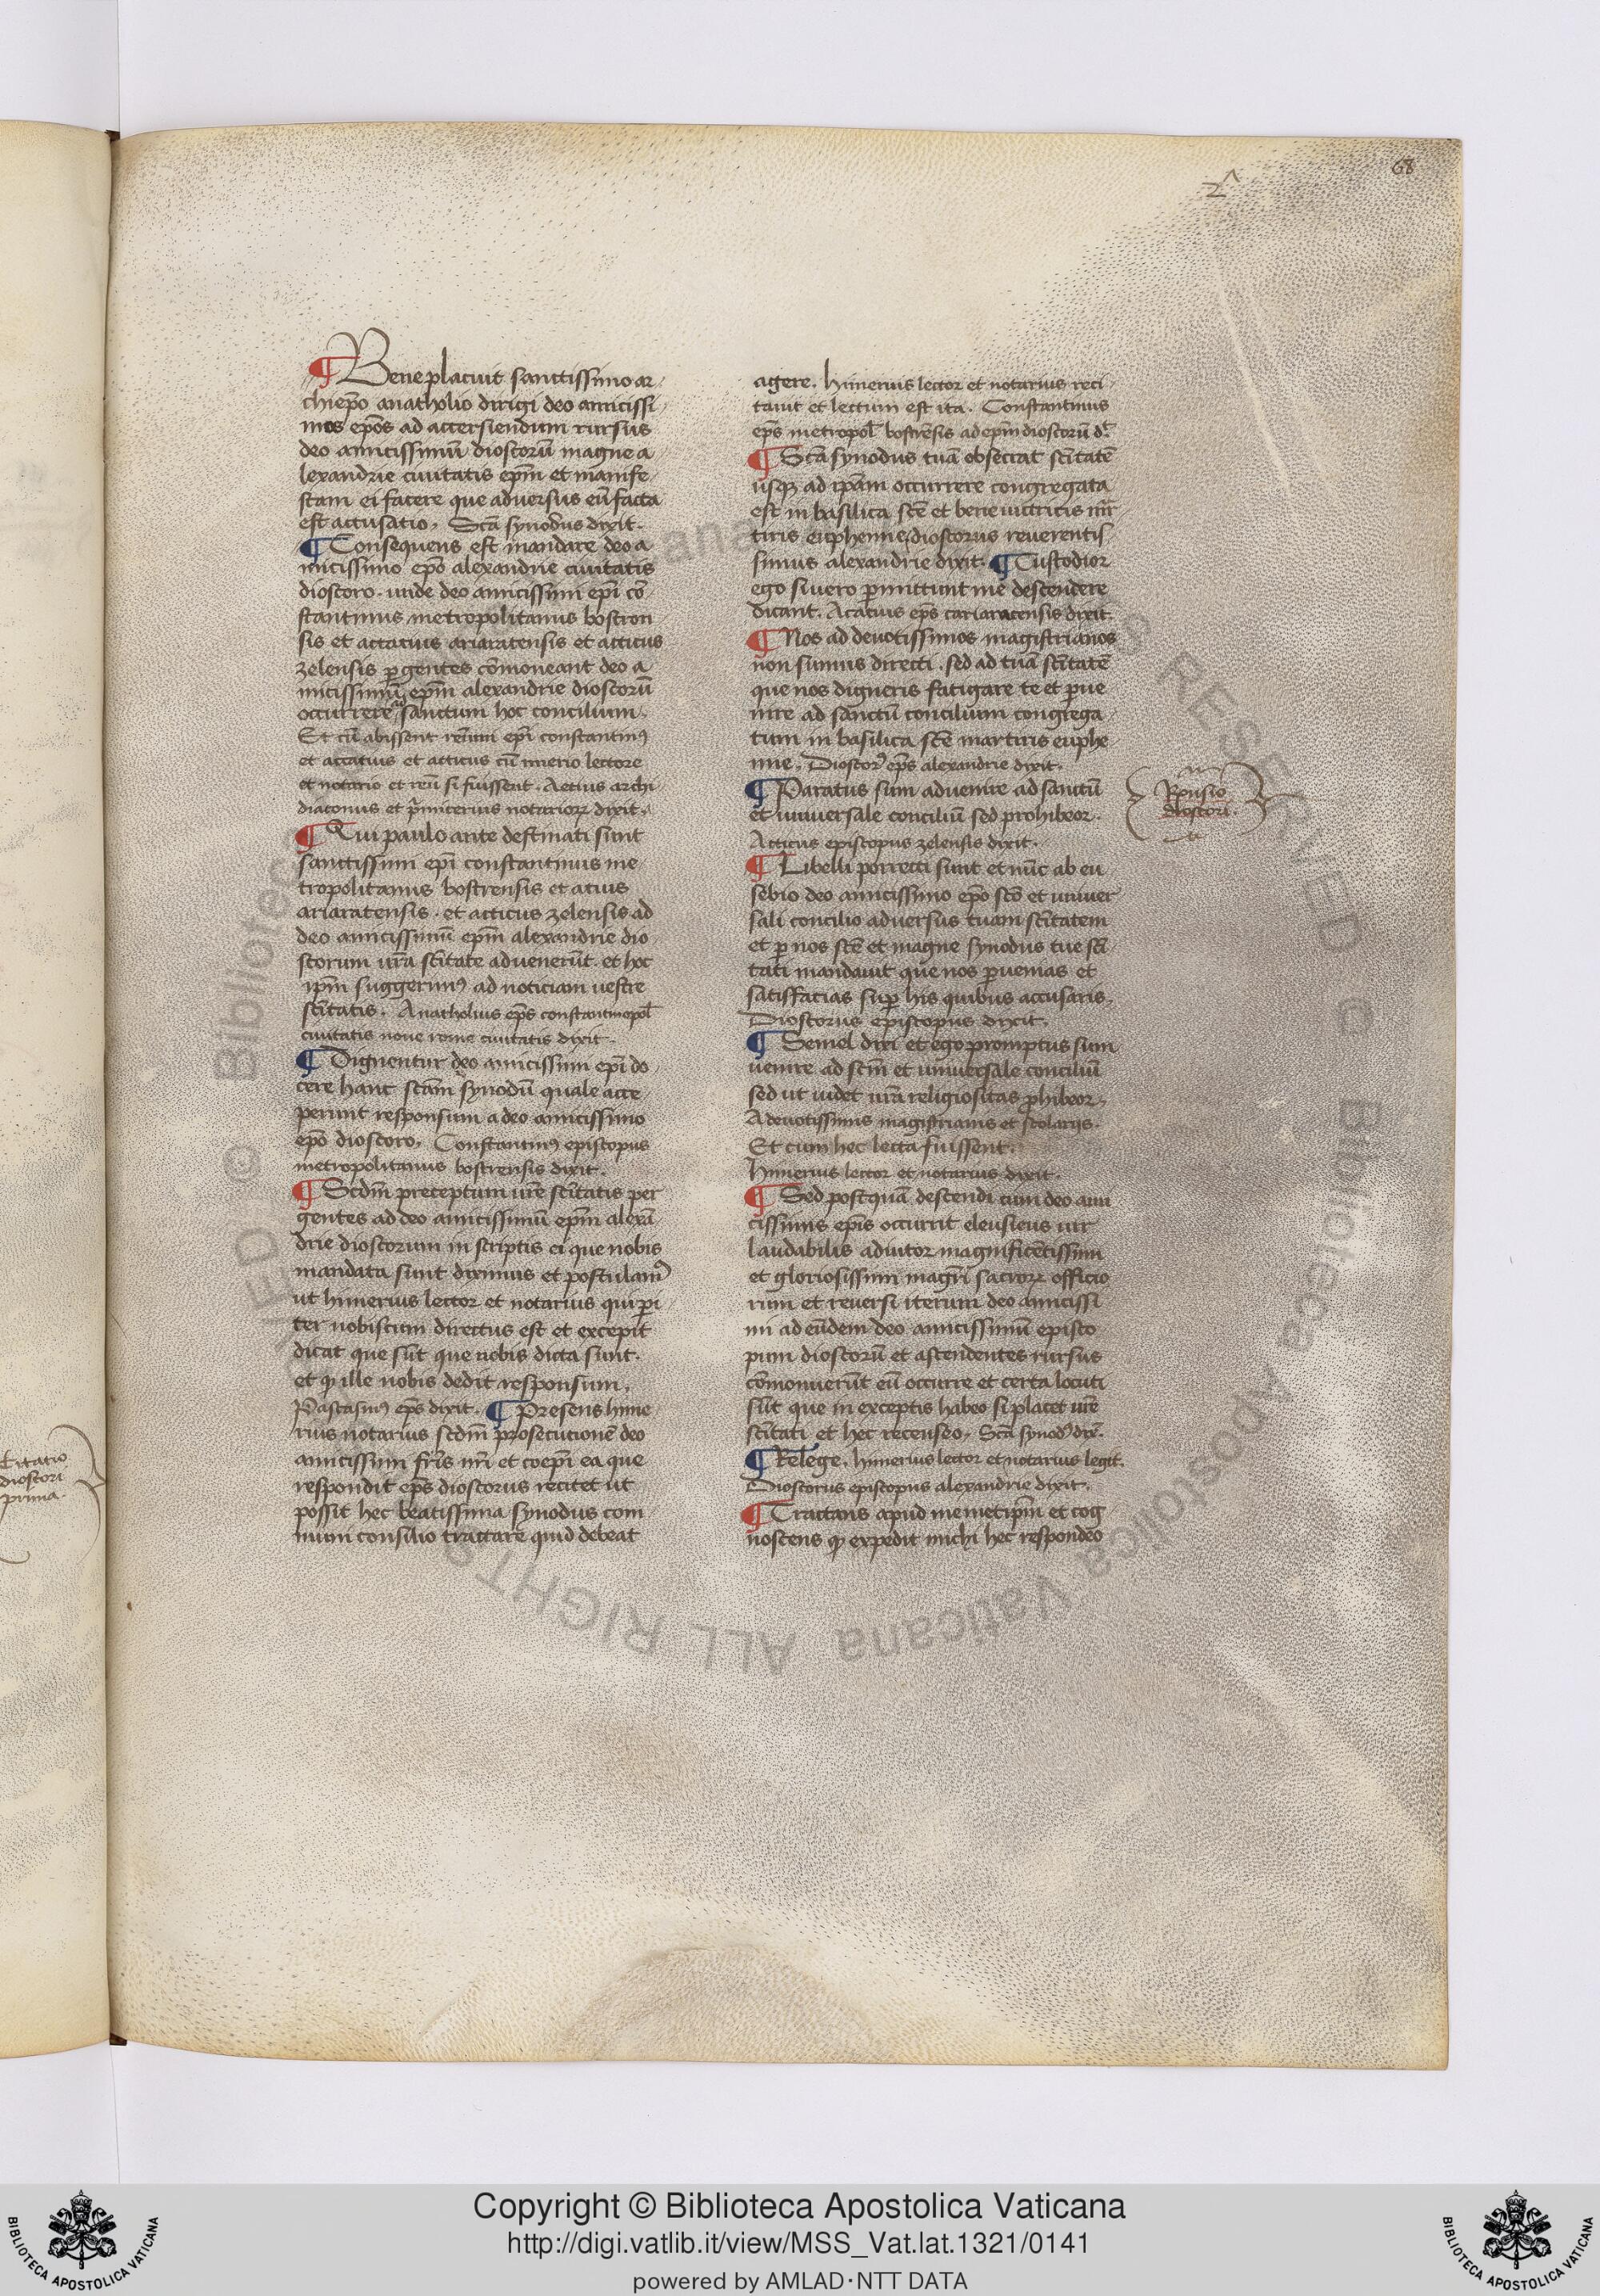 68
2^
¶ Bene placuit sanctissimo ar
chiepo anatholio dirigi deo amicissi
mos epos ad accersiendum rursus
deo amicissimū dioscorū magne a
lexandrie ciuitatis epm et manife
stam ei facere que aduersus eū facta
est accusatio, Sca synodus dixit.
¶ Consequens est mandare deo a
micissimo epo alexandrie ciuitatis
dioscoro. unde deo amicissimi epi cō
stantinus metropolitanus bostron
sis et accacius ariaratensis et atticus
zelensis pgentes cōmoneant deo a
micissimū epm alexandrie dioscorū
occurrere ad sanctum hoc concilium.
Et cū abissent epi constantinꝰ
et accatius et atticus cū imerio lectore
et notario et reūsi fuissent. Aetius archi
diaconus et pmicerius notarioꝝ dixit.
¶ Qui paulo ante destinati sunt
sanctissimi epi constantinus me
tropolitanus bostrensis et acius
ariaratensis. et atticus zelensis ad
deo amicissimū epm alexandrie dio
scorum ura sctitate aduenerūt. et hoc
ipm suggerimꝰ ad noticiam uestre
sctitatis. Anatholius eps constantinopol
ciuitatis noue rome ciuitatis dixit.
¶ Dignentur deo amicissimi epi do
cere hanc scam synodū quale acce
perunt responsum a deo amicissimo
epo dioscoro, Constantinꝰ episcopus
metropolitanus bostrensis dixit.
¶ Scdm preceptum ure sctitatis per
gentes ad deo amicissimū epm alexā
drie dioscorum in scriptis ei que nobis
mandata sunt diximus et postulamꝰ
ut himerius lector et notarius qui pi
ter nobiscum directus est et excepit
dicat que sūt que nobis dicta sunt.
et ꝙ ille nobis dedit responsum,
Pascasinꝰ eps dixit. ¶ Presens hime
rius notarius scdm prosecutionē deo
amicissimi fris nri et coepi ea que
respondit eps dioscorus recitet ut
possit hec beatissima synodus com
muni consilio tractare quid debeat
agere. himerius lector et notarius reci
tauit et lectum est ita. Constantinus
eps metropol bostrēsis ad epm dioscorū d.
¶ Sca synodus tuā obsecrat sctitatē
usqꝫ ad ipam occurrere congregata
est in basilica scē et bene uictricis mr
tiris euphemie, dioscorus reuerentis
simus alexandrie dixit. ¶ Custodior
ego si uero pmittunt me descendere
dicant. Acacius eps cariaracensis dixit.
¶ Nos ad deuotissimos magistrianos
non sumus directi. sed ad tuā sctitatē
que nos digneris fatigare te et pue
nire ad sanctū concilium congrega
tum in basilica scē martiris euphe
mie, Dioscorꝰ eps alexandrie dixit.
¶ Paratus sum aduenire ad sanctū
et uniuersale conciliū sed prohibeor.
Atticus episcopus zelensis dixit.
¶ Libelli porrecti sunt et nūc ab eu
sebio deo amicissimo epo sco et uniuer
sali concilio aduersus tuam sctitatem
et p nos scē et magne synodus tue scti
tati mandauit que nos puenias et
satisfacias sup his quibus accusaris.
Dioscorus episcopus dixit.
¶ Semel dixi et ego promptus sum
uenire ad scm et uniuersale conciliū
sed ut uidet ura religiositas phibeor,
A deuotissimis magistrianis et scolarijs.
Et cum hec lecta fuissent.
himerius lector et notarius dixit.
¶ Sed postquā descendi cum deo ami
cissimis epis occurrit eleusicus uir
laudabilis adiutor magnificētissimi
et gloriosissimi magri sacroꝝ officio
rum et reuersi iterum deo amicissi
mi ad eūdem deo amicissimū episco
pum dioscorū et ascendentes rursus
cōmonuerūt eū occurre et certa locuti
sūt que in exceptis habeo si placet ure
sctitati et hec recenseo, Sca synodꝰ dix.
¶ Relege, himerius lector et notarius legit.
Dioscorus episcopus alexandrie dixit,
¶ Tractans apud memetipm et cog
noscens ꝙ expedit michi hec respondeo
Rōnsio
dioscori.
Citatio
dioscori
prima.
Copyright © Biblioteca Apostolica Vaticana
http://digi.vatlib.it/view/MSS_Vat.lat.1321/0141
powered by AMLAD·NTT DATA
BIBLIOTECA APOSTOLICA VATICANA
BIBLIOTECA APOSTOLICA VATICANA